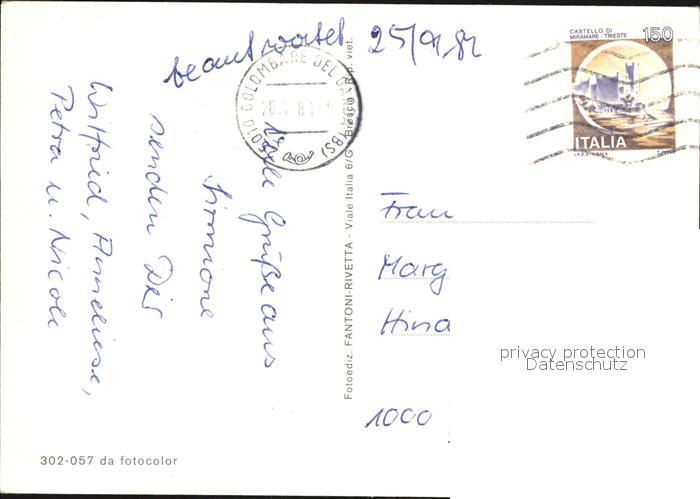 beantwortet 25/01/82
CASTELLO DI
MIRAMARE - TRIESTE 150
ITALIA
25010 COLOMBARE DEL (BS)
Viele Grüße aus
Sirmione
senden Dir
Wilfrid, Anneliese,
Petra u. Nicole
Fotoediz. FANTONI-RIVETTA - Viale Italia 6/G - Brescia viet.
Frau
Marg
Hina
1000
privacy protection
Datenschutz
302-057 da fotocolor